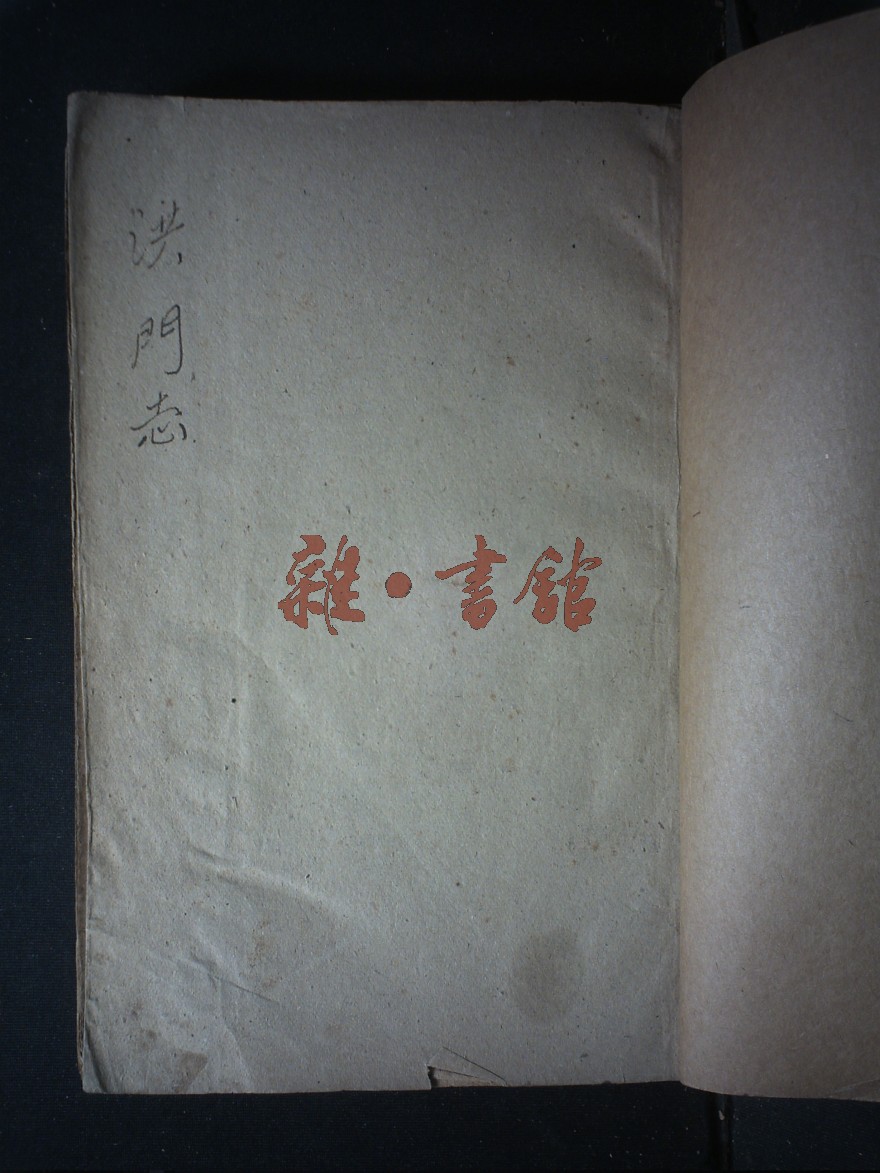 洪門志
雜·書館